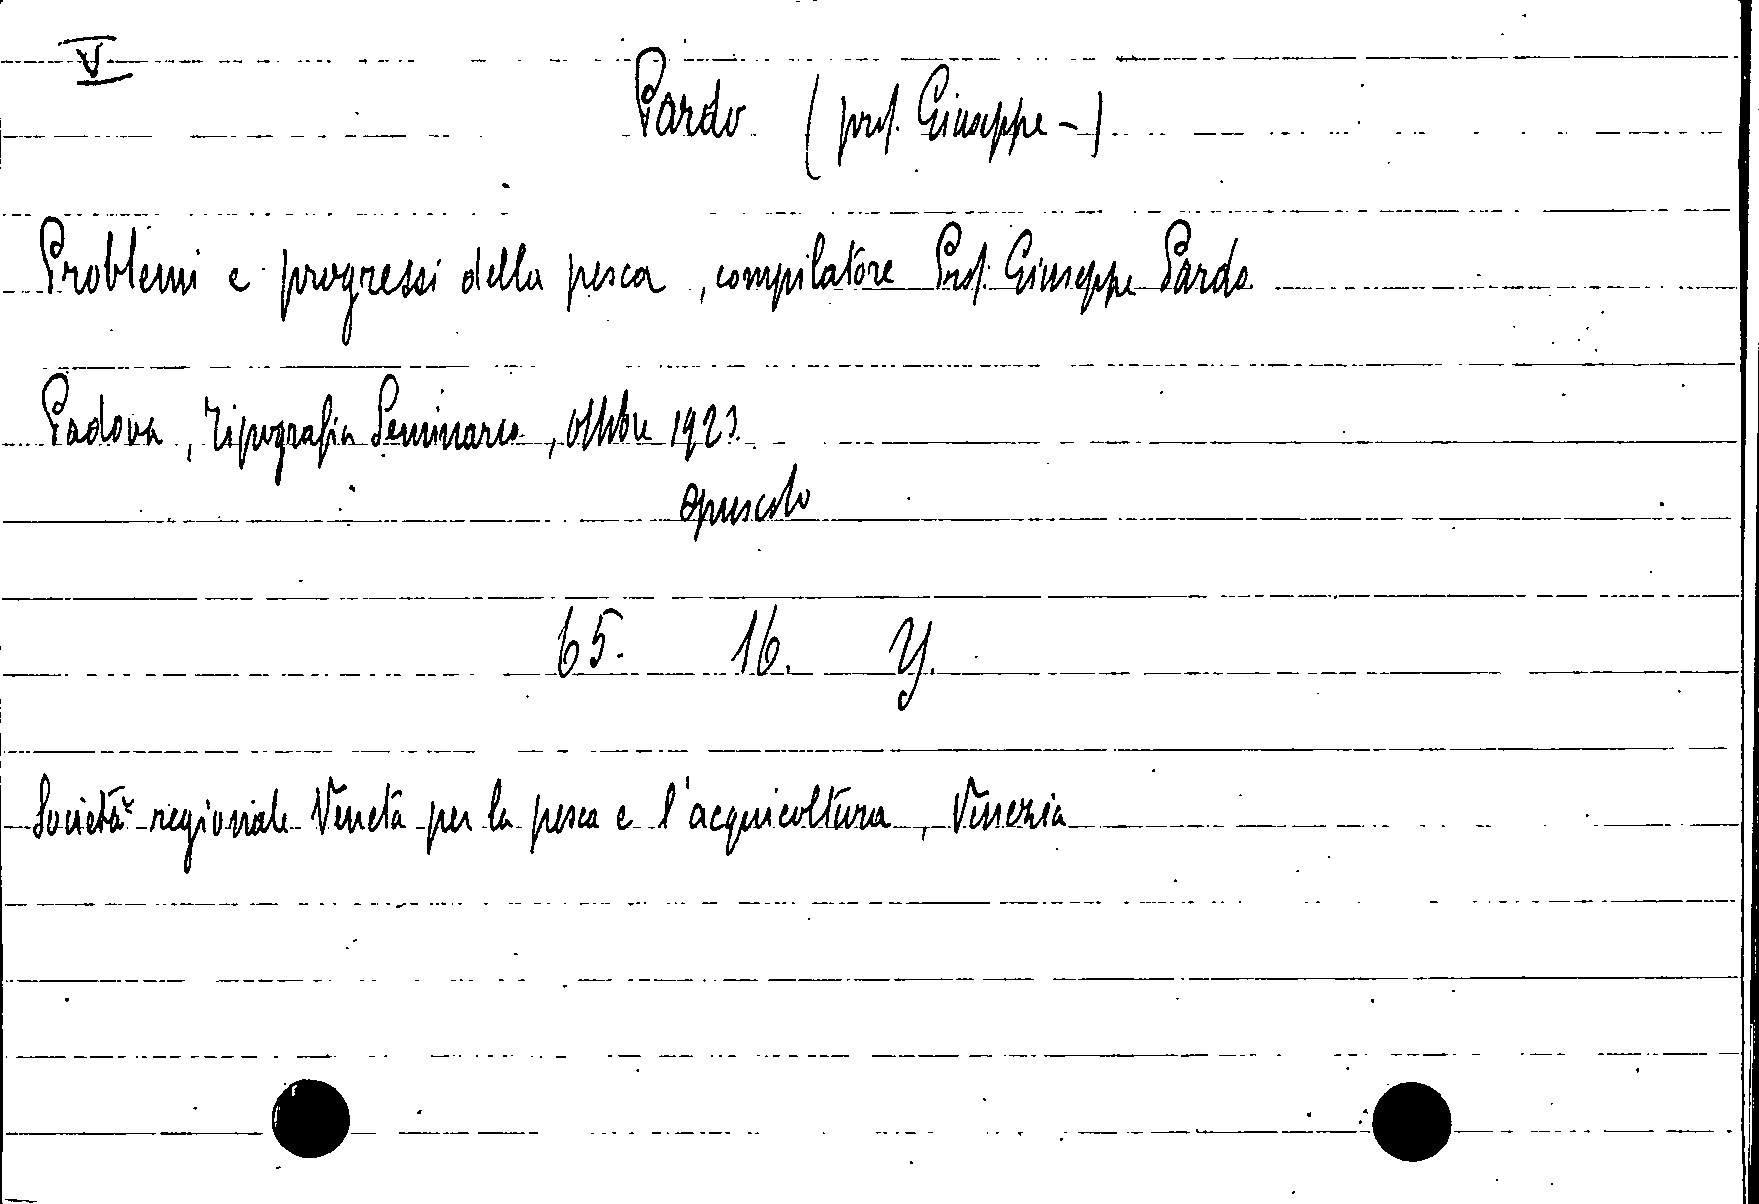 V
Pardo (prof. Giuseppe -)
Problemi e progressi della pesca, compilatore Prof. Giuseppe Pardo.
Padova, Tipografia Seminario, ottobre 1923.
opuscolo
65. 16. Y.
Società regionale Veneta per la pesca e l'acquicoltura, Venezia